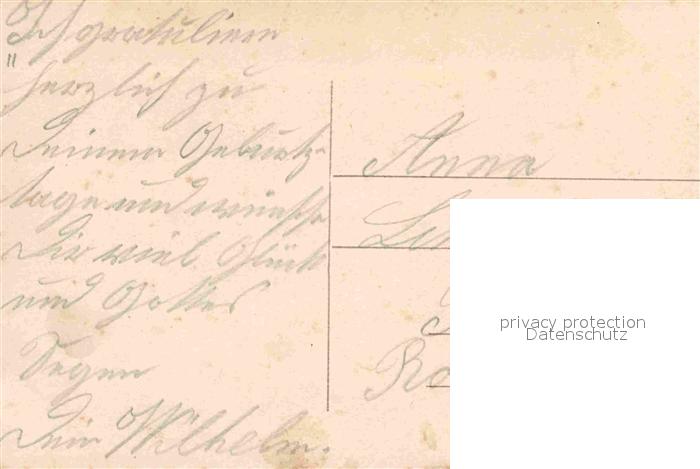 Ich gratuliere
herzlich zu
Deinem Geburts-
tage und wünsche
Dir viel Glück
und Gottes
Segen
Dein Wilhelm.
Anna
privacy protection
Datenschutz